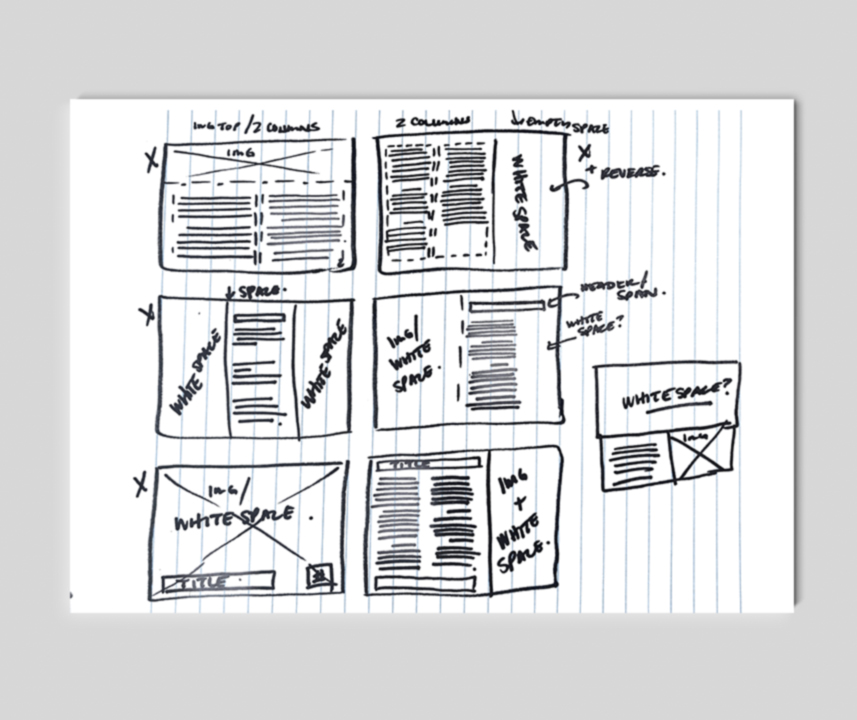 IMG TOP / 2 COLUMNS
2 COLUMNS
↓ EMPTY SPACE
X
IMG
WHITE SPACE
X
+ REVERSE.
↓ SPACE.
X
WHITE SPACE
WHITE SPACE
HEADER/
SPAN.
IMG/
WHITE
SPACE.
WHITE
SPACE?
WHITE SPACE?
IMG
X
IMG/
WHITE SPACE.
TITLE
TITLE
IMG
+
WHITE
SPACE.